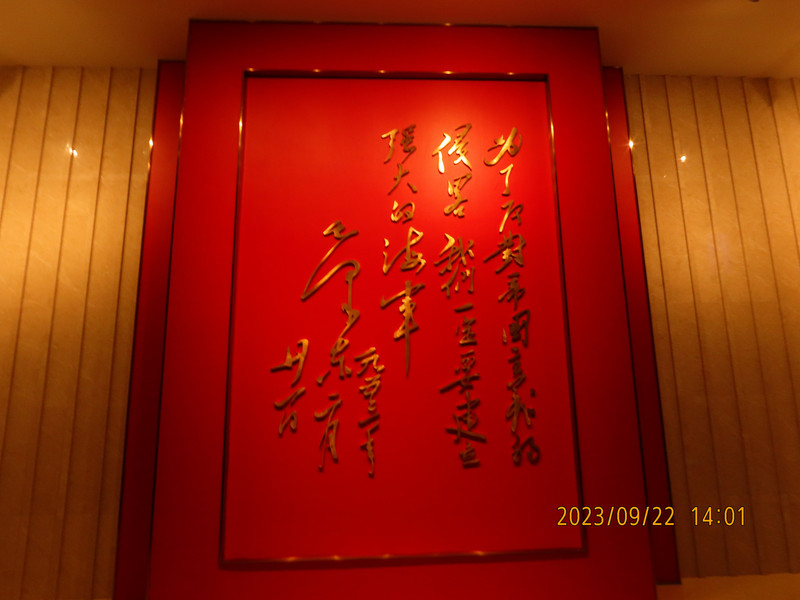 为了反對帝国主義的
侵畧 我们一定要建立
强大的海軍
毛泽东
一九五三年
二月
2023/09/22 14:01